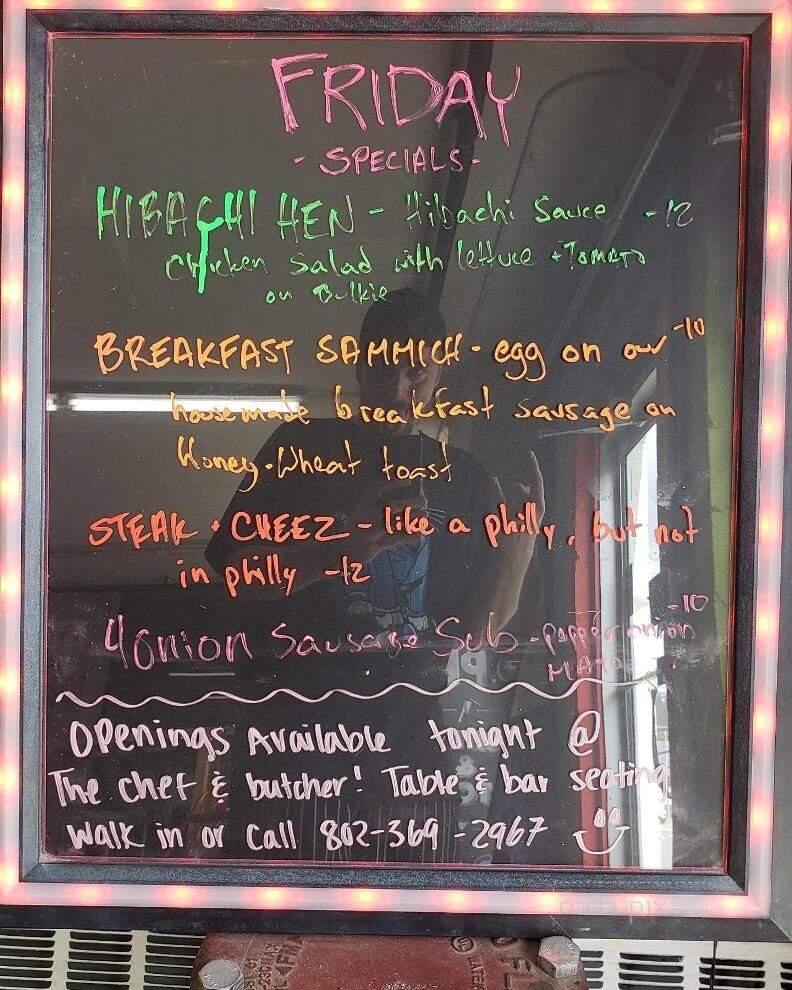 FRIDAY
- SPECIALS -
HIBACHI HEN - Hibachi Sauce -12
Chicken Salad with lettuce + TOMATO
on Bulkie
BREAKFAST SAMMICH - egg on our -10
house made breakfast sausage on
Honey-Wheat toast
STEAK + CHEEZ - like a philly, but not
in philly -12
4 onion Sausage Sub - pepper onion -10
MAYO
Openings Available tonight @
The chef & butcher! Table & bar seating
Walk in or call 802-369-2967